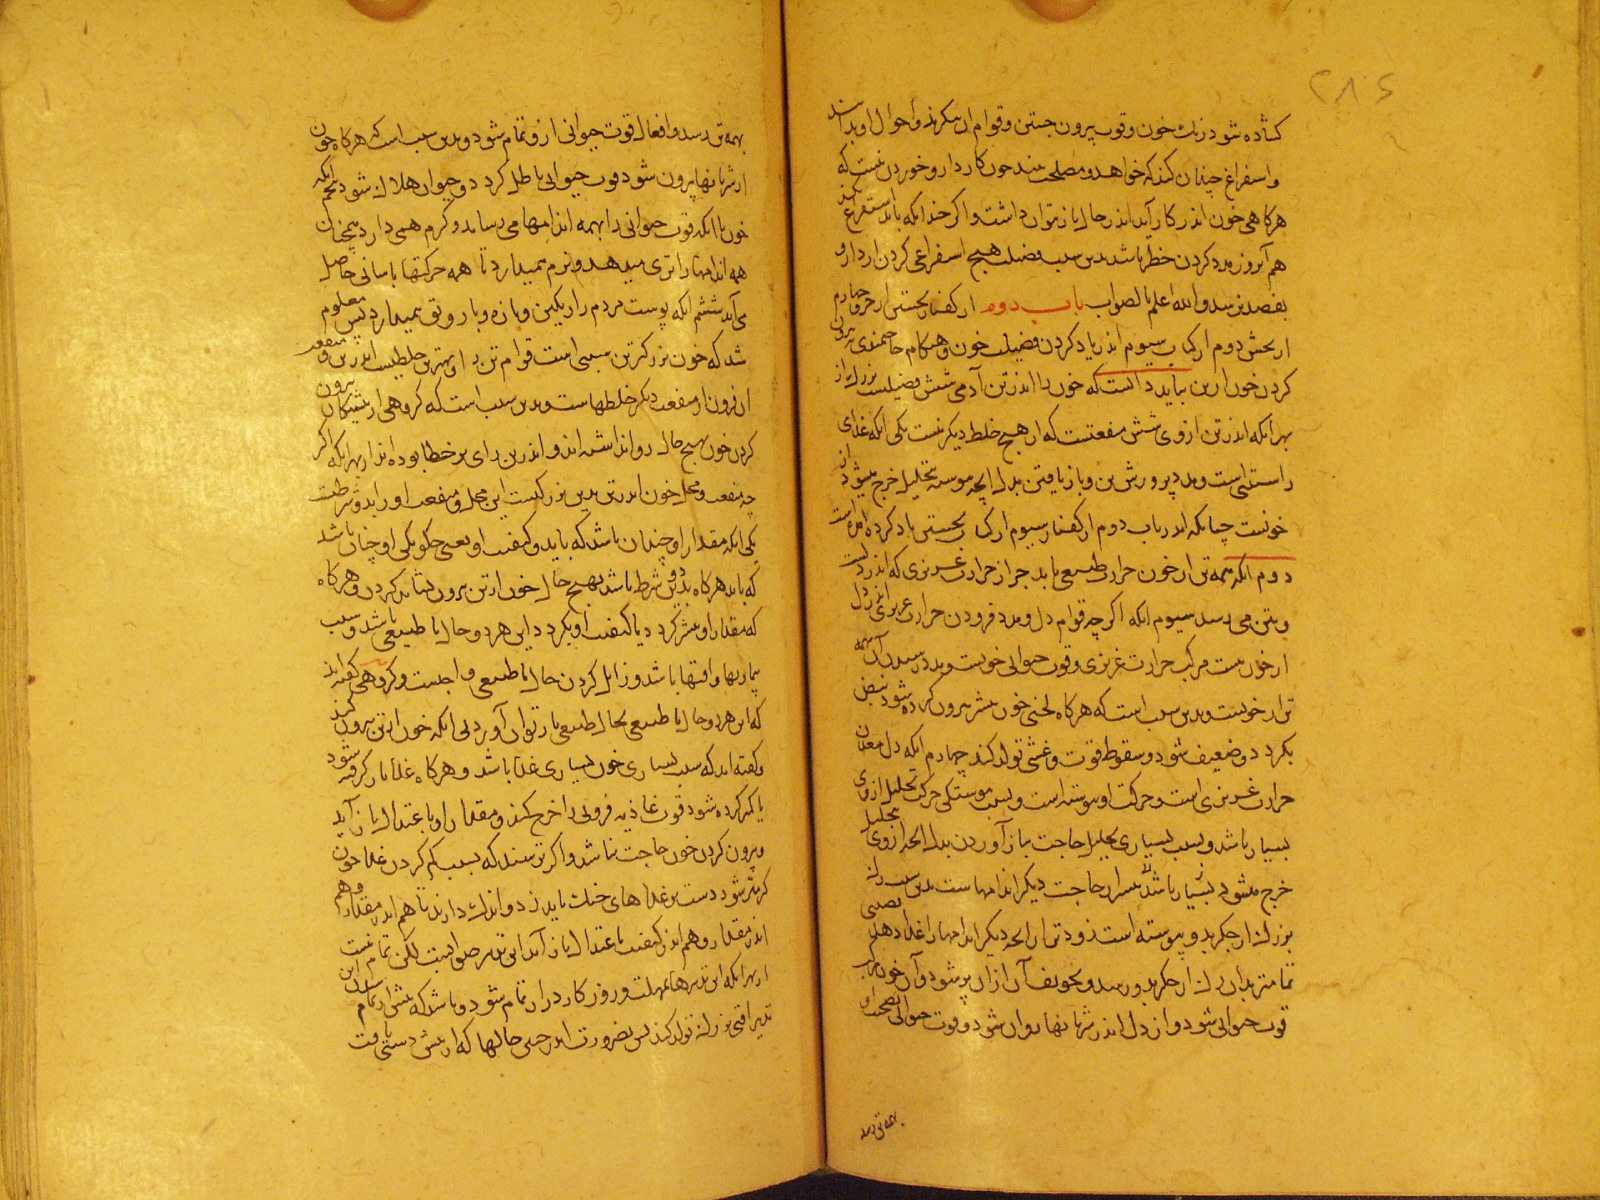 کشاده شود و رنگ خون و قوت بیرون جستن و قوام او بنکرند و احوال او بدانند
و استفراغ چندان کنند که خواهد و مصلحت بیند چون کار دارو خوردن نیست که
هرکاهی خون اندر کار آید اندر حال باز توان داشت و اکر خدانکه باید استفراغ نکند
هم آن روز مدد کردن خطر باشد بدین سبب فضلت هیچ استفراغی کردن از دارو
بفصد نرسد و الله اعلم بالصواب باب دوم از کفتار نخستین از جزو چهارم
از بخش دوم از کتاب سیوم اندر یاد کردن فضیلت خون و هنکام حاجتمندی بیرون
کردن خون از تن بباید دانست که خون را اندر تن آدمی شش فضیلت بزرک از
بهر آنکه اندر تن از وی شش منفعتست که از هیچ خلط دیکر نیست یکی آنکه غذای
راستینی است و بدو پرورش تن و باز یافتن بدل آنچه پیوسته بتحلیل خرج میشود از
خونست چنانکه اندر باب دوم از کفتار سیوم از کتاب نخستین یاد کرده امده است
دوم آنکه همه تن از خون حرارت طبیعی یابد جز از حرارت غریزی که اندر دلست
و بتن می رسد سیوم آنکه اکر چه قوام دل و مدد فزودن حرارت غریزی اندر دل
از خونست مرکب حرارت غریزی و قوت حیوانی خونست و مدد رسیدن آن بهمه
تن از خونست و بدین سبب است که هرکاه لختی خون بیشتر بیرون کرده شود نبض
بکردد و ضعیف شود و سقوط قوت و غشی تولد کند چهارم آنکه دل معدن
حرارت غریزی است و حرکت او پیوسته است و بسبب پیوستکی حرکت تحلیل از وی
بسیار باشد و بسبب بسیاری تحلیل حاجت باز آوردن بدل آنچه از وی بتحلیل
خرج میشود بسیار باشد
بزرک از جکر بدو پیوسته است زودتر از آنچه دیکر اندامها را غذا دهد نصیبی
تمامتر بدان رک از جکر بدو رسد و تجویف آن از آن پر شود و آن خون مرکب
قوت حیوانی شود و از دل اندر شریانها روان شود و قوت حیوانی بصحبت او
بهمه تن رسد
بهمه تن رسد و افعال قوت حیوانی از و تمام شود و بدین سبب است که هرکاه خون
از شریانها بیرون شود قوت حیوانی باطل کردد و حیوان هلاک شود پنجم آنکه
خون با آنکه قوت حیوانی را بهمه اندامها می رساند و کرم همی دارد همچنان
همه اندامها را تری میدهد و نرم میدارد تا همه حرکتها باسانی حاصل
می آید ششم آنکه پوست مردم را رنکین و تازه و با رونق میدارد پس معلوم
شد که خون بزرکترین سببی است قوام تن را و بهترین خلطیست اندر تن و منفعت
او فزون از منفعت دیکر خلطهاست و بدین سبب است که کروهی از پیشیکان بیرون
کردن خون بهیچ حال روا نداشته اند و اندرین رای بر خطا بوده اند از بهر آنکه اکر
چه منفعت و محل خون اندر تن بدین بزرکیست این محل و منفعت او را بدو شرطست
یکی آنکه مقدار او چندان باشد که باید و کیفیت او یعنی چکونکی او چنان باشد
که باید هرکاه بدین دو شرط باشد بهیچ حال خون از تن بیرون نشاید کردن و هرکاه
که مقدار او بیشتر کردد یا کیفیت او بکردد این هر دو حال نا طبیعی باشد و سبب
بیماریها و افتها باشد و زایل کردن حال نا طبیعی واجبست و کروهی کفته اند
که این هر دو حال نا طبیعی بحال طبیعی باز توان آورد بی آنکه خون از تن بیرون کنند
و کفته اند که سبب بسیاری خون بسیاری غذا باشد و هرکاه غذا باز کرفته شود
یا کمتر کرده شود قوت غاذیه فزونی را خرج کند و مقدار او با اعتدال باز آید
و بیرون کردن خون حاجت نباشد و اکر ترسند که بسبب کم کردن غذا خون
کرمتر شود دست بر غذاهای خنک باید زد و اندک دارند تا هم اندر مقدار و هم
اندر مقدار و هم اندر کیفیت با اعتدال باز آید این تدبیر صوابست لکن تمام نیست
از بهر آنکه این تدبیرها بمهلت و روزکار دراز تمام شود و باشد که پیش از تمام شدن این
تدبیر افتی بزرک تولد کند پس بضرورت اندر چنین حالها که از پیش دستی یافت